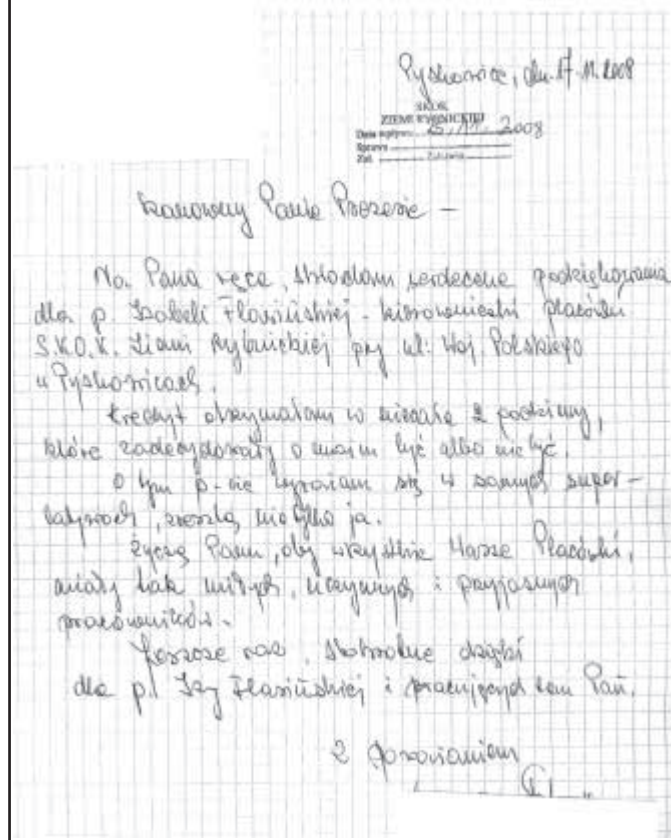 Pyskowice, dn. 17.11.2008
SKOK
ZIEMI RYBNICKIEJ
Data wpływu 25.11.2008
Sprawa
Zał.
Szanowny Panie Prezesie —
Na Pana ręce, składam serdeczne podziękowania
dla p. Izabeli Flasińskiej - kierowniczki placówki
S.K.O.K. Ziemi Rybnickiej przy ul: Woj. Polskiego
w Pyskowicach.
Kredyt otrzymałam w niecałe 2 godziny,
które zadecydowały o moim być albo nie być.
O tym p-cie wyrażam się w samych super-
latywach, zresztą nie tylko ja.
Życzę Panu, aby wszystkie Wasze Placówki,
miały tak miłych, uczynnych i przyjaznych
pracowników.
Jeszcze raz, stokrotne dzięki
dla p. Izy Flasińskiej i pracujących tam Pań.
Z poważaniem